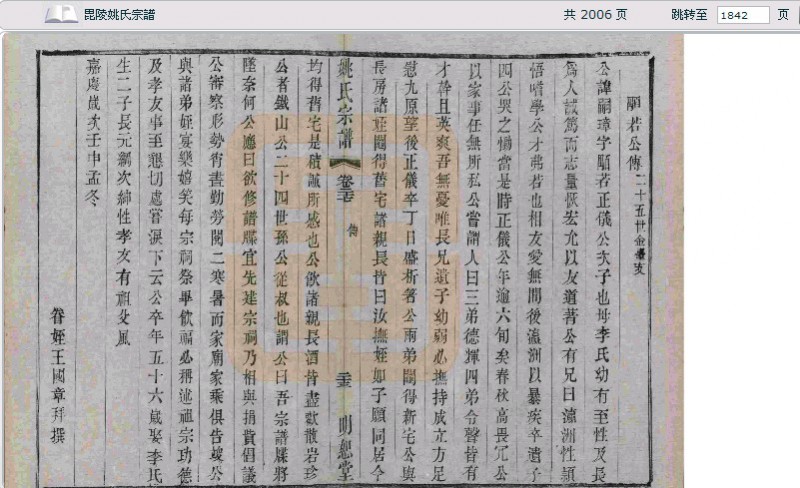 毘陵姚氏宗譜
共 2006 页
跳转至 1842 页
顒若公傳 二十五世金臺支
公諱嗣璋字顒若正儀公次子也母李氏幼有至性及長
爲人誠篤而志量恢宏尤以友道著公有兄曰瀛洲性穎
悟嗜學公才弗若也相友愛無間後瀛洲以暴疾卒遺子
四公哭之慟當是時正儀公年逾六旬矣春秋高畏冗公
以家事任無所私公嘗謂人曰三弟德輝四弟令聲皆有
才幹且英爽吾無憂唯長兄遺子幼弱必撫持成立方足
慰九原望後正儀卒丁日盛析箸公兩弟鬮得新宅公與
長房諸姪鬮得舊宅諸親長皆曰汝撫姪如子願同居今
姚氏宗譜 卷三 傳 明恕堂
均得舊宅是積誠所感也公飲諸親長酒皆盡歡散岩珍
公者鐵山公二十四世孫公從叔也謂公曰吾宗譜牒將
墜奈何公應曰欲修譜牒宜先建宗祠乃相與捐貲倡議
公審察形勢術晝勤勞閱二寒暑而家廟家乘俱告竣公
與諸弟姪宴樂嬉笑每宗祠祭畢飲福必稱述祖宗功德
及孝友事至懇切處嘗淚下云公卒年五十六歲娶李氏
生二子長元綱次綿性孝友有祖父風
嘉慶歲次壬申孟冬
眷姪王國章拜撰